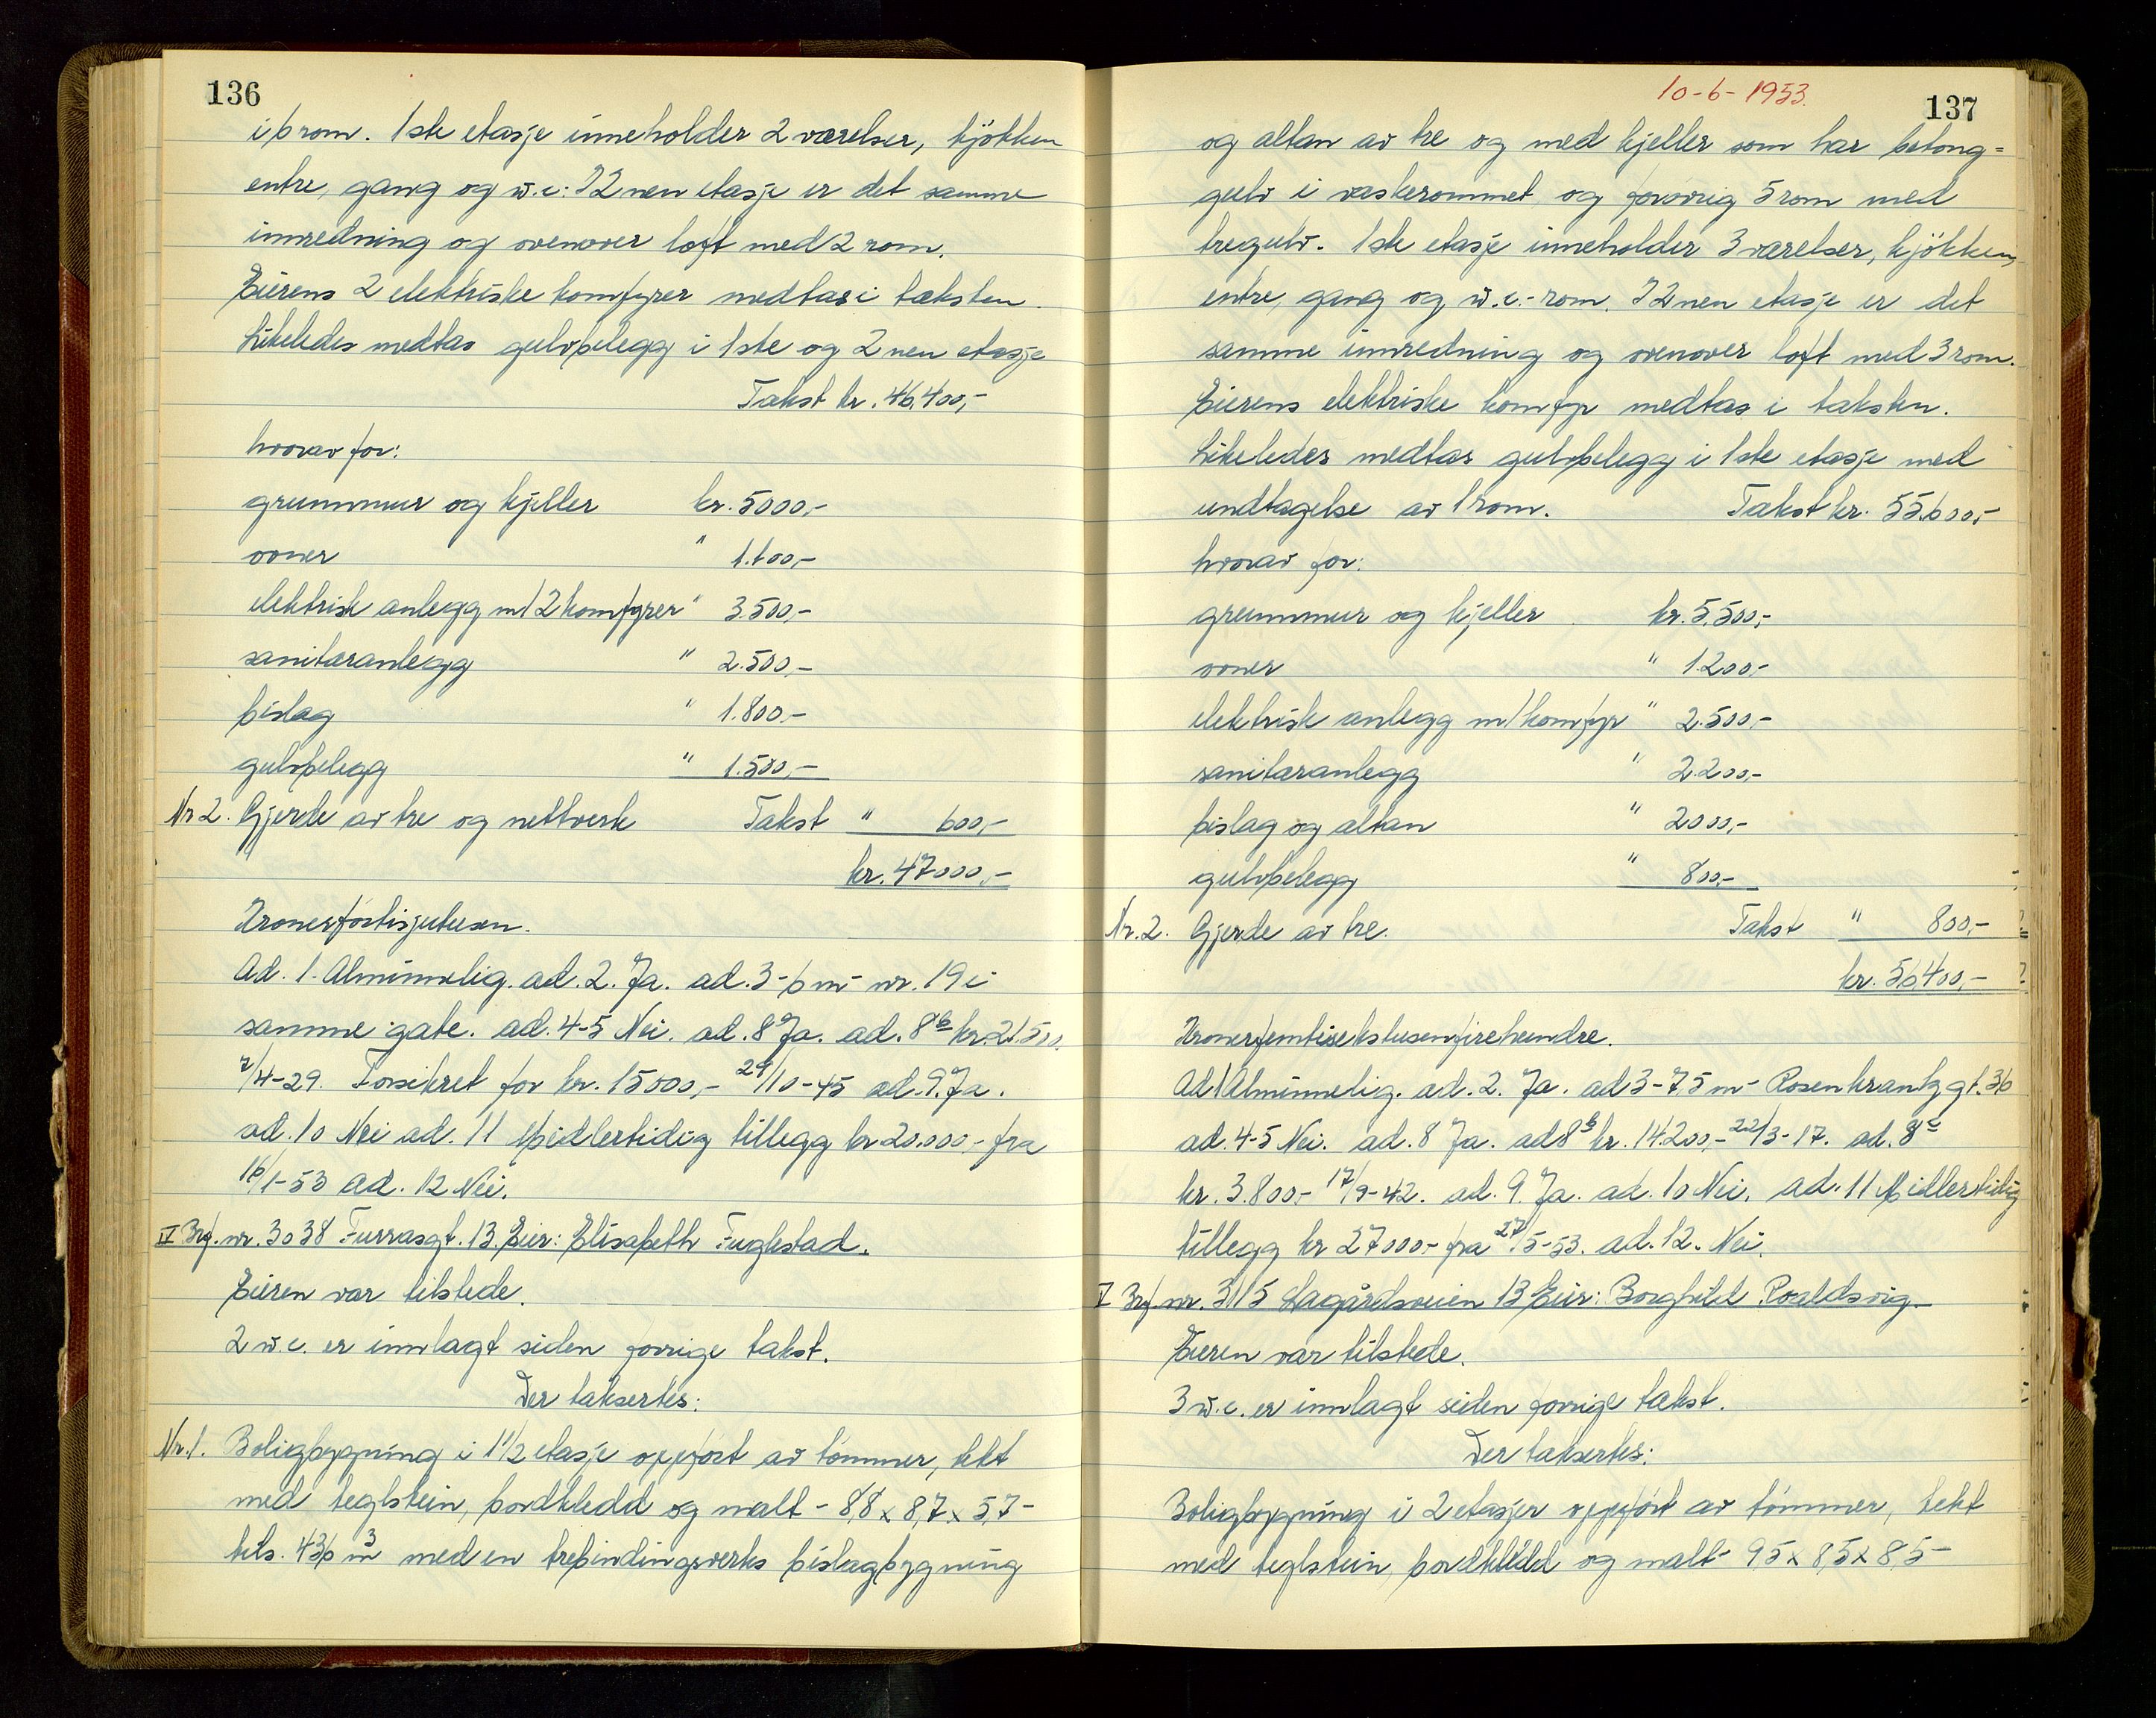 136
i 6 rom. 1ste etasje inneholder 2 værelser, kjökken
entre, gang og w.c. I 2nen etasje er det samme
innredning og ovenover loft med 2 rom.
Eierens 2 elektriske komfyrer medtas i taksten.
Likeledes medtas gulvbelegg i 1ste og 2nen etasje
Takst kr. 46.400,-
hvorav for:
grunnmur og kjeller kr. 5000,-
ovner " 1.100,-
elektrisk anlegg m/2 komfyrer " 3.500,-
sanitæranlegg " 2.500,-
bislag " 1.800,-
gulvbelegg " 1.500,-
Nr 2. Gjerde av tre og nettverk Takst " 600,-
kr. 47000,-
Kronerførtisjutusen.
Ad. 1. Alminnelig. ad. 2. Ja. ad. 3 - 6 m - nr. 19 i
samme gate. ad. 4-5 Nei. ad. 8 Ja. ad. 8b kr. 21.500.
2/4-29. Forsikret for kr. 15000,- 29/10-45 ad. 9. Ja.
ad. 10 Nei ad. 11 Midlertidig tillegg kr 20.000,- fra
16/1-53 ad. 12 Nei.
IV Brf. nr. 3038 Furrasgt. 13. Eier: Elisabeth Fuglestad.
Eieren var tilstede.
2 w.c. er innlagt siden forrige takst.
Der taksertes:
Nr. 1. Boligbygning i 1 1/2 etasje oppfört av tömmer, tekt
med teglstein, bordkledd og malt - 8,8 x 8,7 x 5,7 -
tils. 436 m3 med en trebindingsverks bislagbygning
10-6-1953.
137
og altan av tre og med kjeller som har betong=
gulv i vaskerommet og forövrig 5 rom med
tregulv. 1ste etasje inneholder 3 værelser, kjökken,
entre, gang og w.c.-rom. I 2nen etasje er det
samme innredning og ovenover loft med 3 rom.
Eierens elektriske komfyr medtas i taksten.
Likeledes medtas gulvbelegg i 1ste etasje med
undtagelse av 1 rom. Takst kr. 55.600,-
hvorav for:
grunnmur og kjeller kr. 5.500,-
ovner " 1.200,-
elektrisk anlegg m/komfyr " 2.500,-
sanitæranlegg " 2.200,-
bislag og altan " 2000,-
gulvbelegg " 800,-
Nr. 2. Gjerde av tre. Takst " 800,-
kr. 56.400,-
Kronerfemtisekstusenfirehundre.
Ad 1 Alminnelig. ad. 2. Ja. ad 3 - 7.5 m - Rosenkrantzgt. 36
ad. 4-5 Nei. ad. 8 Ja. ad 8b kr. 14.200,- 22/3-17. ad. 8c
kr. 3.800,- 17/9-42. ad. 9. Ja. ad. 10 Nei. ad. 11 Midlertidig
tillegg kr 27000,- fra 27/5-53. ad. 12. Nei.
V Brf. nr. 3115 Lagårdsveien 13 Eier: Borghild Roaldsvig.
Eieren var tilstede.
3 w.c. er innlagt siden forrige takst.
Der taksertes:
Boligbygning i 2 etasjer oppfört av tömmer, tekt
med teglstein, bordkledd og malt - 9,5 x 8,5 x 8,5 -